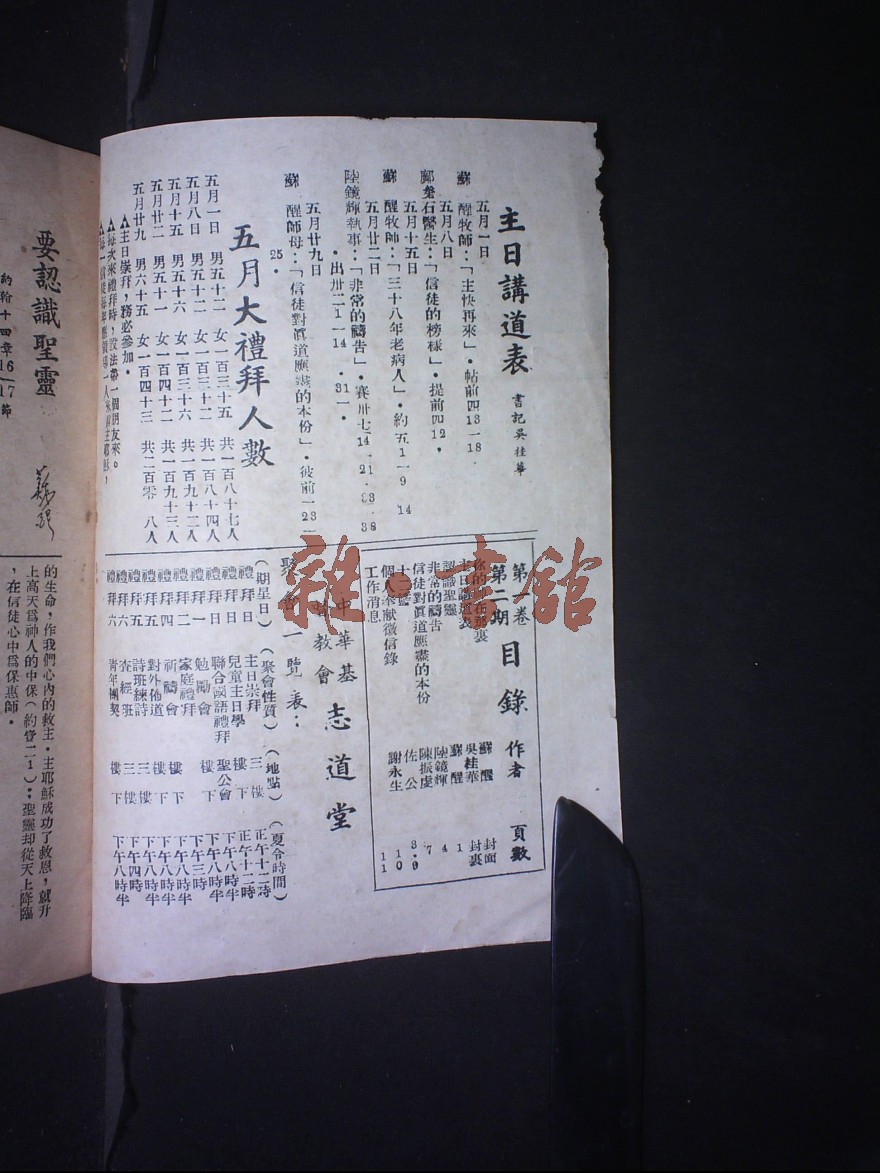 主日講道表 書記吳桂華
五月一日
蘇 醒牧師:「主快再來」・帖前四13—18
五月八日
鄺磐石醫生:「信徒的榜樣」・提前四12・
五月十五日
蘇 醒牧師:「三十八年老病人」・約五1—9 14
五月廿二日
陸鏡輝執事:「非常的禱告」・賽卅七14—21・33—38
・出卅二1—14 ・31—・
五月廿九日
蘇 醒師母:「信徒對眞道應盡的本份」・彼前一23—
25・
五月大禮拜人數
五月一日 男五十二 女一百三十五 共一百八十七人
五月八日 男五十二 女一百三十二 共一百八十四人
五月十五 男五十六 女一百三十六 共一百九十二人
五月廿二 男五十一 女一百四十二 共一百九十三人
五月廿九 男六十五 女一百四十三 共二百零 八人
▲主日崇拜,務必參加・
▲每次來禮拜時,設法帶一個朋友來。
第一卷
第二期 目錄 作者 頁數
你的神在那裏 蘇醒 封面
主日講道表 吳桂華 封裏
認識聖靈 蘇 醒 1
非常的禱告 陸鏡輝 4
信徒對眞道應盡的本份 陳振虞 7
佐 公 8・9
個人奉献徵信錄 謝永生 10
工作消息 11
中華基
督教會 志道堂
聚會一覽表:
(期星日) (聚會性質) (地點) (夏令時間)
禮拜日 主日崇拜 三樓 正午十二時
禮拜日 兒童主日學 樓下 正午十二時
禮拜日 聯合國語禮拜 聖公會 下午八時半
禮拜一 勉勵會 樓下 下午三時
禮拜二 家庭禮拜 下午八時半
禮拜四 祈禱會 樓下 下午八時半
禮拜五 對外佈道 樓下 下午八時半
禮拜五 詩班練詩 三樓 下午八時半
禮拜六 查經班 三樓 下午四時
禮拜六 青年團契 樓下 下午八時半
雜・書館
要認識聖靈
約翰十四章16—17節
的生命,作我們心內的救主・主耶穌成功了救恩,就升
上高天爲神人的中保(約壹二1):聖靈却從天上降臨
,在信徒心中爲保惠師・